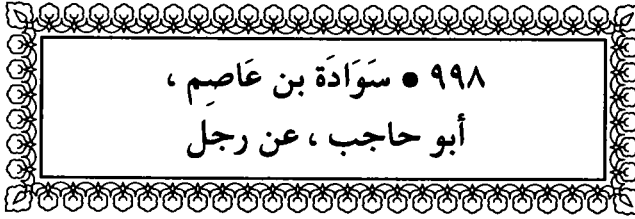 ٩٩٨ • سَوَادَة بن عَاصِم ،
أبو حاجب ، عن رجل